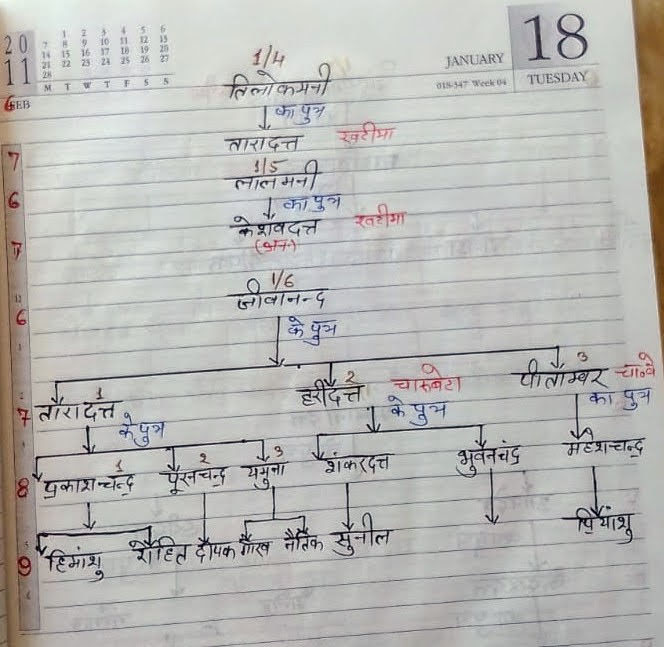 20
11
FEB
1 2 3 4 5 6
7 8 9 10 11 12 13
14 15 16 17 18 19 20
21 22 23 24 25 26 27
28
M T W T F S S
JANUARY
018-347 Week 04
18
TUESDAY
6
1/4
तिलोकमनी
का पुत्र
तारादत्त खटीमा
7
1/5
लालमनी
6
का पुत्र
केशवदत्त खटीमा
7
1/6
जीवानन्द
6
के पुत्र
1 2 3
तारादत्त हरीदत्त चारुबेटा पीताम्बर
7
के पुत्र के पुत्र का पुत्र
1 2 3
8 प्रकाश चन्द्र पूरन चन्द्र यमुना शंकरदत्त भुवनचंद्र महेश चन्द्र
9 हिमांशु रोहित दीपक गौरव नैतिक सुनील प्रियांशु